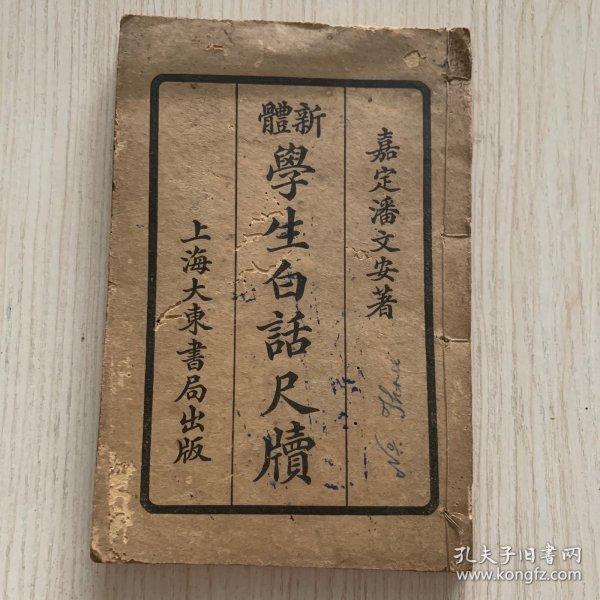 嘉定潘文安著
新體
學生白話尺牘
上海大東書局出版
No. Three
孔夫子旧书网
www.kongfz.com